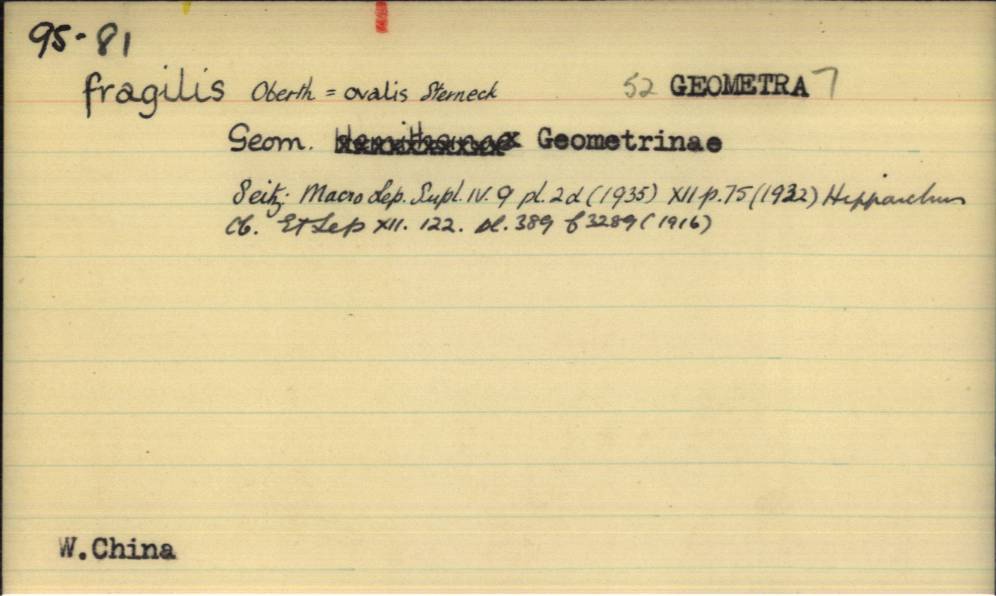 95-81
fragilis Oberth = ovalis Sterneck 52 GEOMETRA 7
Geom. Geometrinae
Seitz: Macro Lep. Supl. IV. 9 pl. 2d (1935) XII p. 75 (1932) Hipparchus
Et Lep XII. 122. pl. 389 f 3289 (1916)
W.China